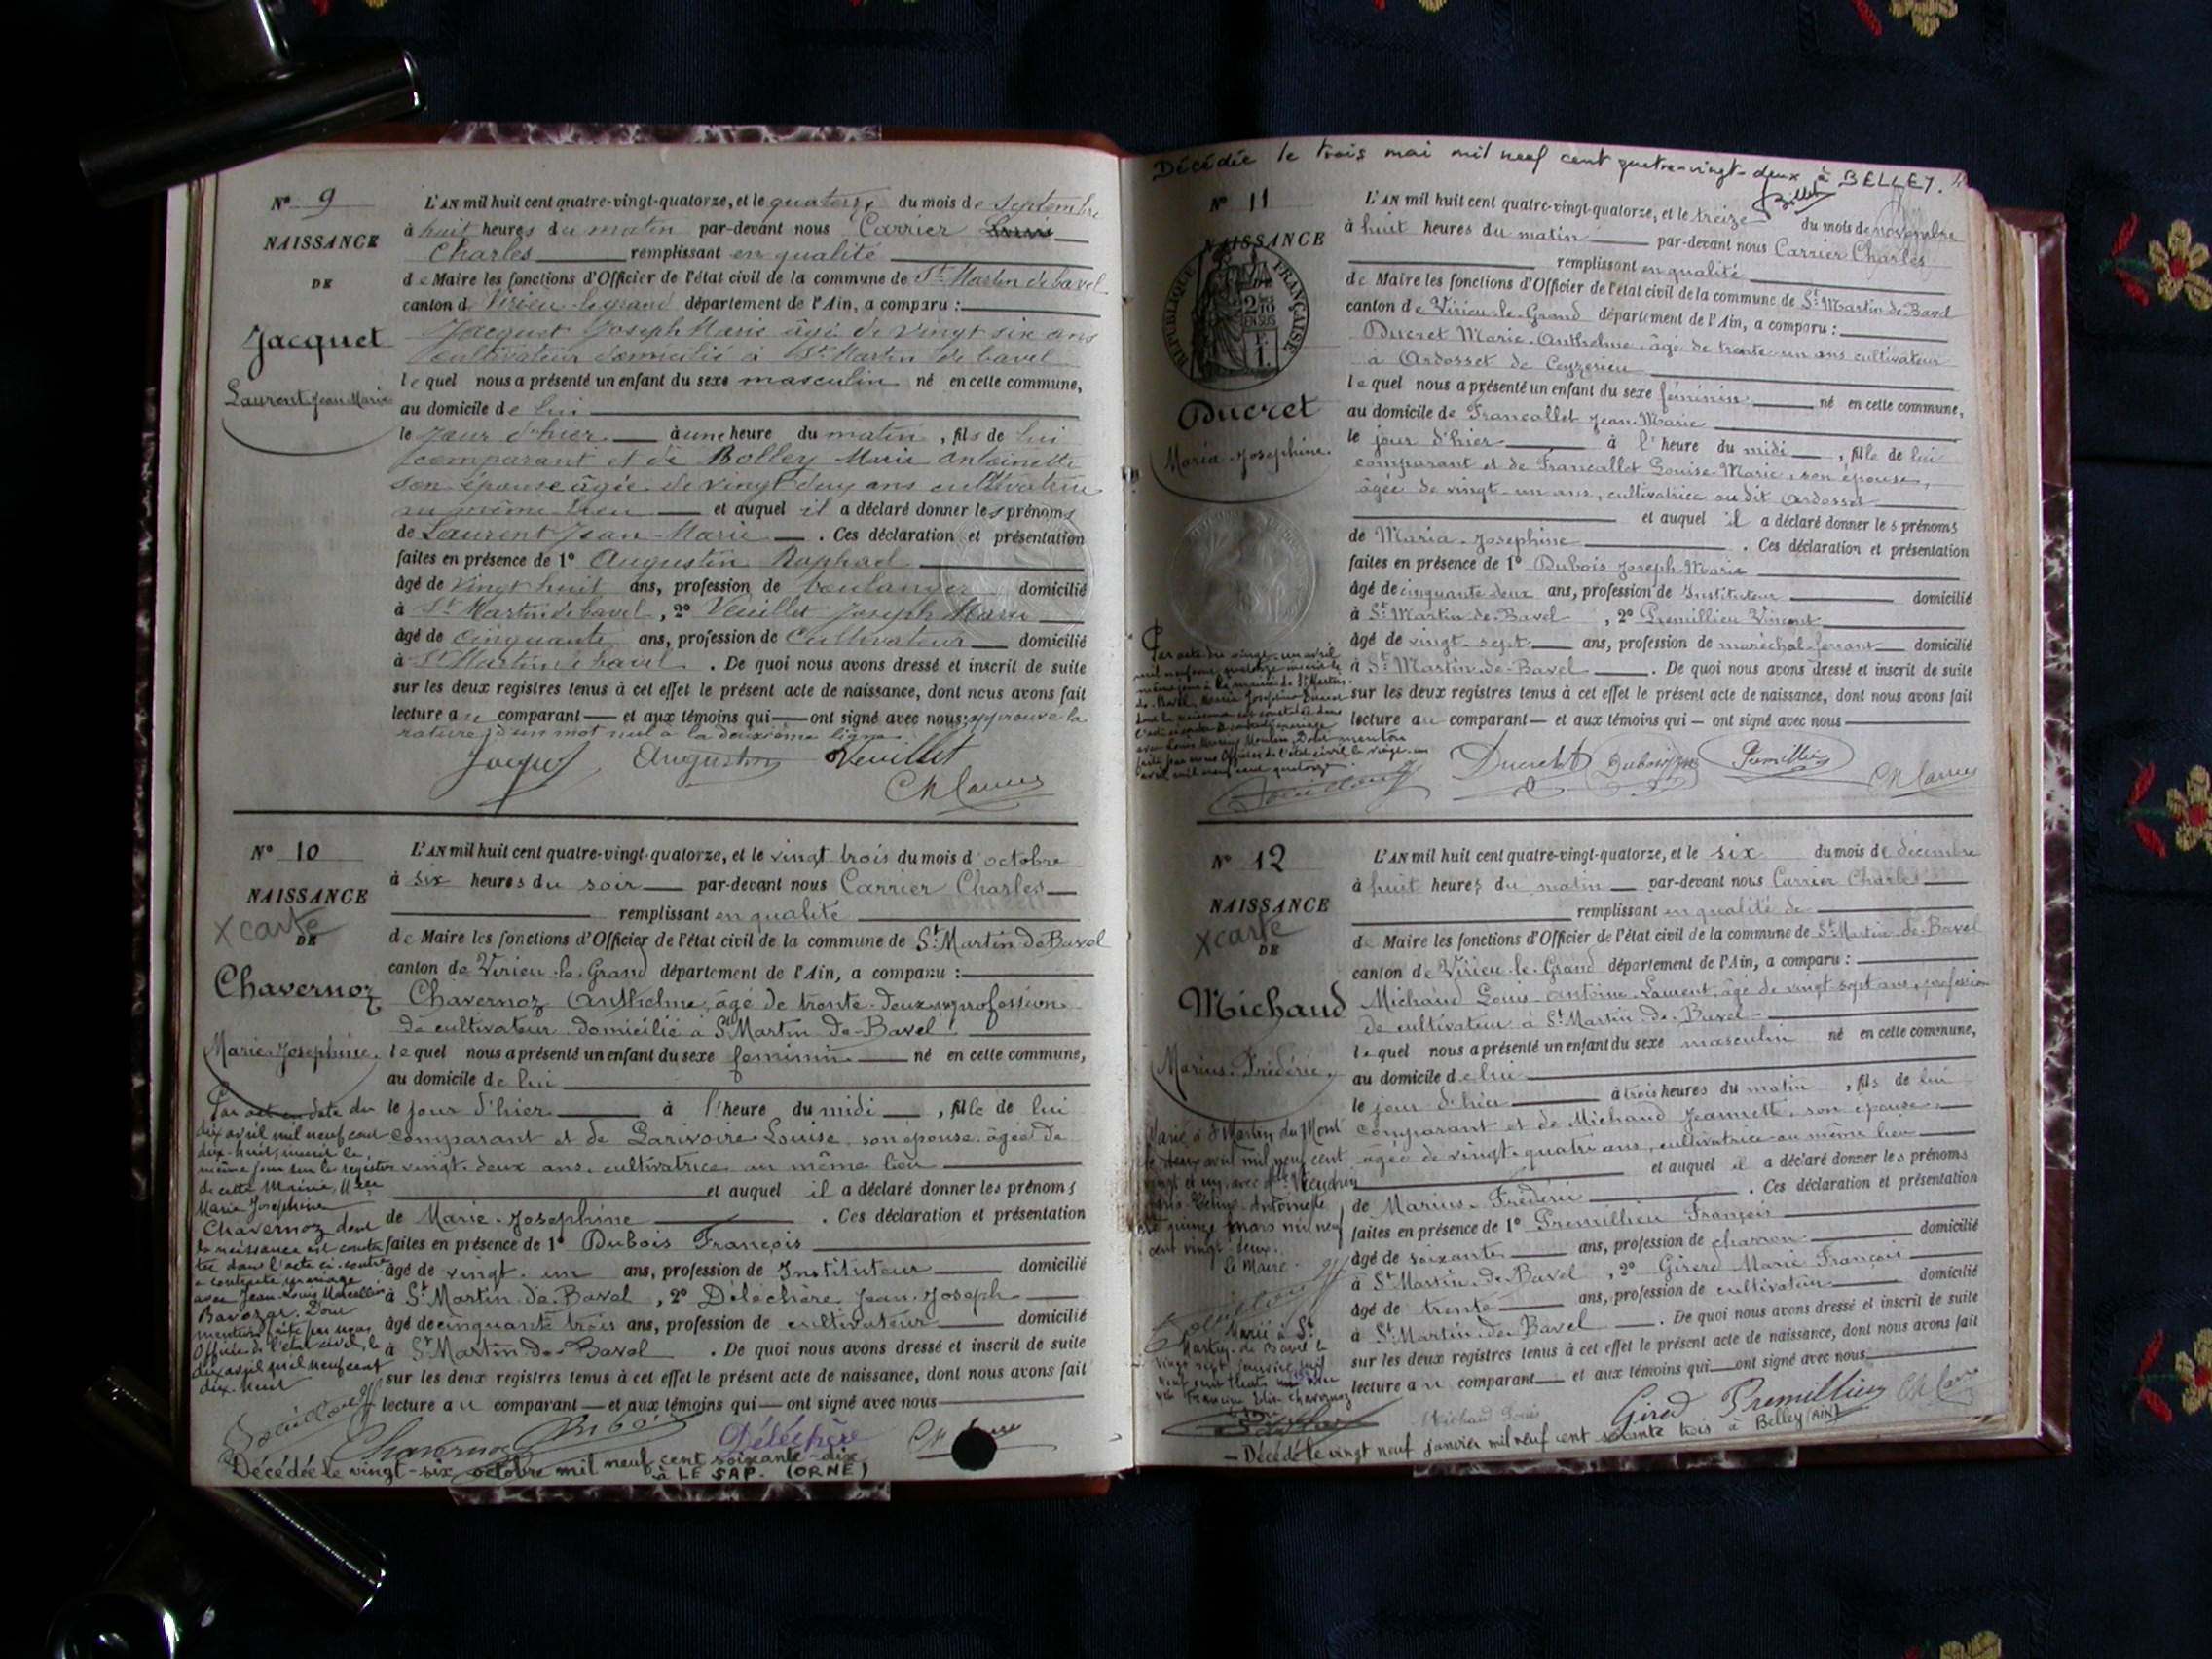 N° 9
NAISSANCE
DE
Jacquet
Laurent Jean Marie
L'AN mil huit cent quatre-vingt-quatorze, et le quatorze du mois de septembre
à huit heures du matin par-devant nous Carrier
Charles remplissant en qualité
de Maire les fonctions d'Officier de l'état civil de la commune de St Martin de bavel
canton de Virieu-le-grand département de l'Ain, a comparu :
Jacquet Joseph Marie âgé de vingt six ans
cultivateur domicilié à St Martin de bavel
lequel nous a présenté un enfant du sexe masculin né en cette commune,
au domicile de lui
le jour d'hier à une heure du matin, fils de lui
comparant et de Bolley Marie antoinette
son épouse âgée de vingt deux ans
au même lieu et auquel il a déclaré donner les prénoms
de Laurent Jean-Marie. Ces déclaration et présentation
faites en présence de 1° Augustin Raphael
âgé de vingt huit ans, profession de boulanger domicilié
à St Martin de bavel, 2° Veuillet Joseph Marie
âgé de cinquante ans, profession de Cultivateur domicilié
à St Martin de bavel. De quoi nous avons dressé et inscrit de suite
sur les deux registres tenus à cet effet le présent acte de naissance, dont nous avons fait
lecture au comparant et aux témoins qui ont signé avec nous; approuvé la
rature d'un mot nul à la deuxième ligne
Jacquet Augustin Veuillet
Ch Carrier
N° 10
NAISSANCE
X carte
DE
Chavernoz
Marie-Josephine.
L'AN mil huit cent quatre-vingt-quatorze, et le vingt trois du mois d'octobre
à six heures du soir par-devant nous Carrier Charles
remplissant en qualité
de Maire les fonctions d'Officier de l'état civil de la commune de St Martin de Bavel
canton de Virieu-le-Grand département de l'Ain, a comparu :
Chavernoz Anthelme, âgé de trente-deux ans profession
de cultivateur domicilié à St Martin-de-Bavel
lequel nous a présenté un enfant du sexe feminin né en cette commune,
au domicile de lui
le jour d'hier à l'heure du midi, fille de lui
comparant et de Parivoire Louise son épouse, âgée de
vingt-deux ans, cultivatrice au même lieu
et auquel il a déclaré donner les prénoms
de Marie-Josephine. Ces déclaration et présentation
faites en présence de 1° Dubois François
âgé de vingt-un ans, profession de Instituteur domicilié
à St Martin-de-Bavel, 2° Delechère Jean-Joseph
âgé de cinquante trois ans, profession de cultivateur domicilié
à St Martin-de-Bavel. De quoi nous avons dressé et inscrit de suite
sur les deux registres tenus à cet effet le présent acte de naissance, dont nous avons fait
lecture au comparant et aux témoins qui ont signé avec nous
Par acte en date du
dix avril mil neuf cent
dix-huit, inscrit le
même jour sur le registre
de cette Mairie, Melle
Marie Josephine
Chavernoz dont
la naissance est consta
tée dans l'acte ci-contre
a contracté mariage
avec Jean Louis Marcellin
Bavozat. Dont
mention faite par nous
Officier de l'état civil, le
dix avril mil neuf cent
dix-huit
Chavernoz Dubois Déléchère
Décédée le vingt-six octobre mil neuf cent soixante-dix
à LE SAP. (ORNE)
Décédée le trois mai mil neuf cent quatre-vingt-deux à BELLEY.
Billet
N° 11
NAISSANCE
RÉPUBLIQUE FRANÇAISE
Ducret
Maria-Josephine.
L'AN mil huit cent quatre-vingt-quatorze, et le treize du mois de novembre
à huit heures du matin par-devant nous Carrier Charles
remplissant en qualité
de Maire les fonctions d'Officier de l'état civil de la commune de St Martin-de-Bavel
canton de Virieu-le-Grand département de l'Ain, a comparu :
Ducret Marie-Anthelme, âgé de trente-un ans cultivateur
à Ardosset de Ceyzerieu
lequel nous a présenté un enfant du sexe féminin né en cette commune,
au domicile de Francallet Jean-Marie
le jour d'hier à l'heure du midi, fille de lui
comparant et de Francallet Louise-Marie, son épouse,
âgée de vingt-un ans, cultivatrice au dit Ardosset
et auquel il a déclaré donner les prénoms
de Maria-Josephine. Ces déclaration et présentation
faites en présence de 1° Dubois Joseph-Marie
âgé de cinquante deux ans, profession de Instituteur domicilié
à St Martin-de-Bavel, 2° Premillieu Vincent
âgé de vingt-sept ans, profession de maréchal-ferrant domicilié
à St Martin-de-Bavel. De quoi nous avons dressé et inscrit de suite
sur les deux registres tenus à cet effet le présent acte de naissance, dont nous avons fait
lecture au comparant et aux témoins qui ont signé avec nous
Par acte du vingt-un avril
mil neuf cent quatorze inscrit le
même jour à la mairie de St Martin-
de-Bavel, Maria Josephine Ducret
dont la naissance est constatée dans
l'acte ci-contre a contracté mariage
avec Louis Moulin. Dont mention
faite par nous Officier de l'état civil le vingt-un
avril mil neuf cent quatorze.
Ducret Dubois Premillieu Ch Carrier
N° 12
NAISSANCE
X carte
DE
Michaud
Marius-Frédéric.
L'AN mil huit cent quatre-vingt-quatorze, et le six du mois de décembre
à huit heures du matin par-devant nous Carrier Charles
remplissant en qualité de
de Maire les fonctions d'Officier de l'état civil de la commune de St Martin-de-Bavel
canton de Virieu-le-Grand département de l'Ain, a comparu :
Michaud Louis-Antoine-Laurent, âgé de vingt sept ans, profession
de cultivateur à St Martin-de-Bavel
lequel nous a présenté un enfant du sexe masculin né en cette commune,
au domicile de lui
le jour d'hier à trois heures du matin, fils de lui
comparant et de Michaud Jeannette, son épouse,
âgée de vingt-quatre ans, cultivatrice au même lieu
et auquel il a déclaré donner les prénoms
de Marius-Frédéric. Ces déclaration et présentation
faites en présence de 1° Premillieu François
âgé de soixante ans, profession de charron domicilié
à St Martin-de-Bavel, 2° Girerd Marie François
âgé de trente ans, profession de cultivateur domicilié
à St Martin-de-Bavel. De quoi nous avons dressé et inscrit de suite
sur les deux registres tenus à cet effet le présent acte de naissance, dont nous avons fait
lecture au comparant et aux témoins qui ont signé avec nous
Marié à St Martin du Mont
le deux avril mil neuf cent
vingt et un, avec
Antoinette
quinze mars mil neuf
cent vingt-deux.
le Maire.
Marié à St
Martin-de-Bavel le
vingt sept janvier mil
neuf cent trente avec
Francine Chavernoz
Michaud Louis Girerd Premillieu Ch Carrier
- Décédé le vingt neuf janvier mil neuf cent soixante trois à Belley (AIN)